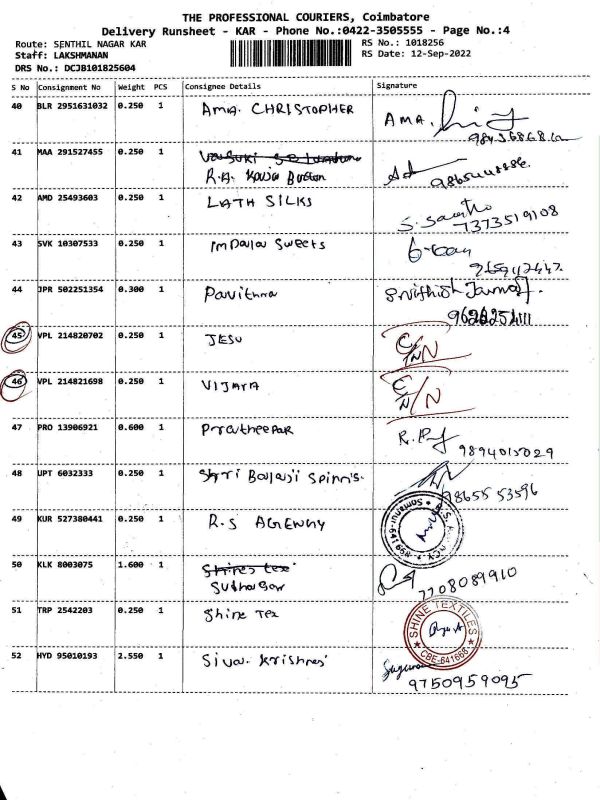 THE PROFESSIONAL COURIERS, Coimbatore
Delivery Runsheet - KAR - Phone No.:0422-3505555 - Page No.:4
Route: SENTHIL NAGAR KAR
RS No.: 1018256
Staff: LAKSHMANAN
RS Date: 12-Sep-2022
DRS No.: DCJB101825604
S No Consignment No Weight PCS Consignee Details Signature
40 BLR 2951631032 0.250 1 AMA. CHRISTOPHER AMA.
41 MAA 291527455 0.250 1
R.A.
42 AMD 25493603 0.250 1 LATH SILKS
7373519108
43 SVK 10307533 0.250 1 Sweets
44 JPR 502251354 0.300 1 Pavithra
45 VPL 214820702 0.250 1 JESU C/N N
46 VPL 214821698 0.250 1 VIJAYA C/N N
47 PRO 13906921 0.600 1 Pratheepar
9894015029
48 UPT 6032333 0.250 1 Shri Balaji Spinn's
98655 53596
49 KUR 527380441 0.250 1 R.S AGENWY
50 KLK 8003075 1.600 1 Shires tex
7708089910
51 TRP 2542203 0.250 1 Shine Tex SHINE TEXTILES
CBE-641668
52 HYD 95010193 2.550 1 Siva. Krishnas'
9750959095